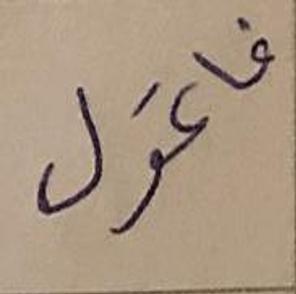 فاعوَل